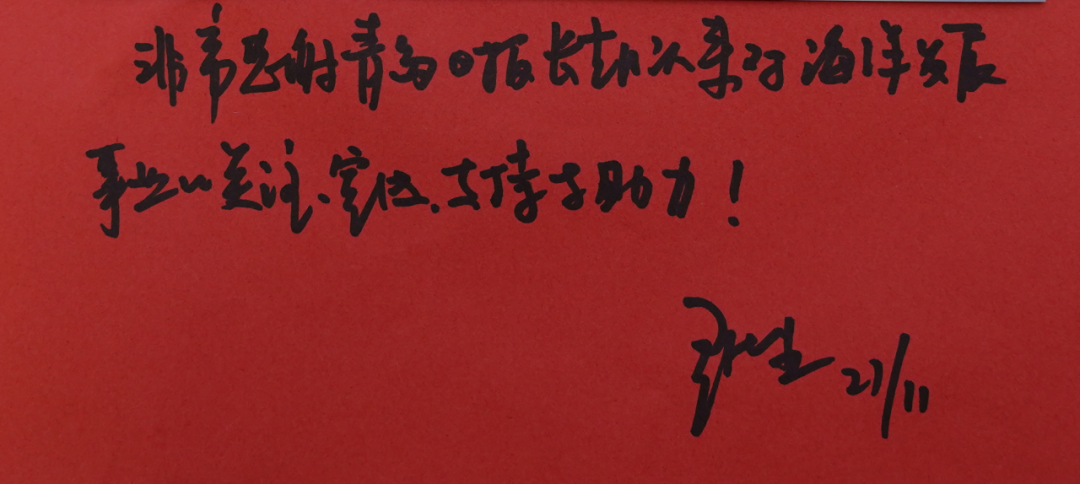 非常感谢青岛日报长期以来对海洋发展
事业的关注、宣传、支持与助力！
27/11